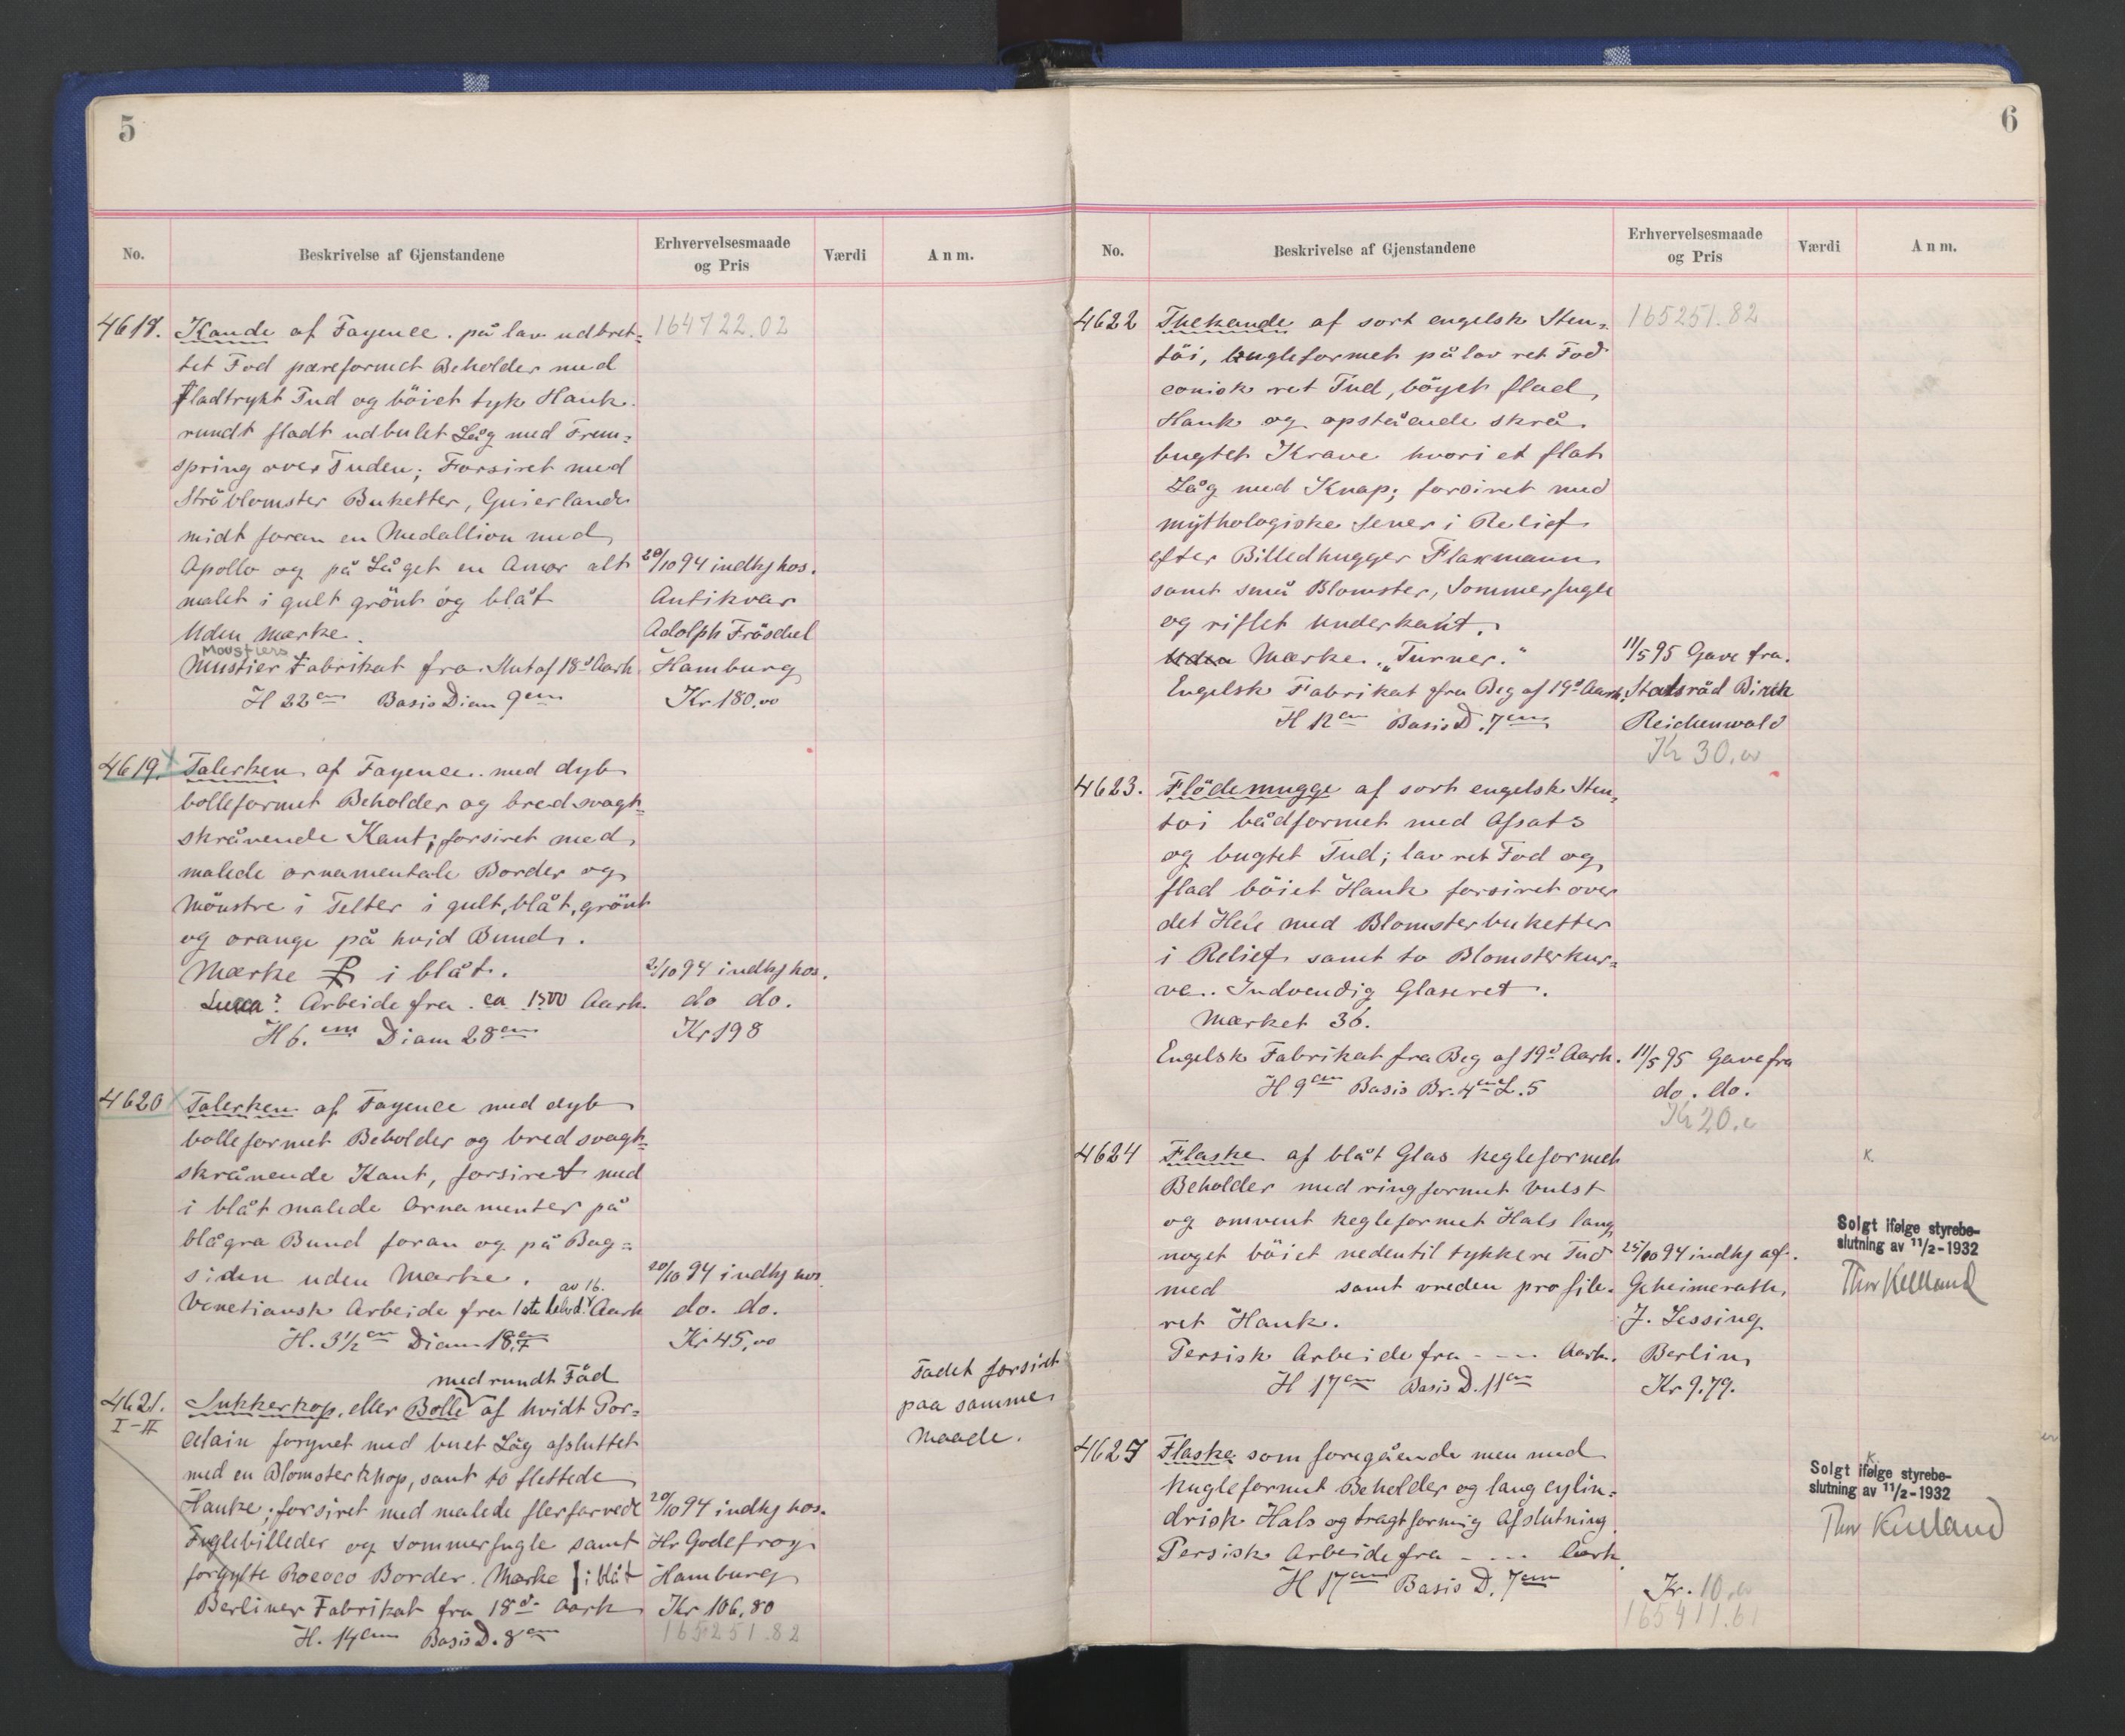 5
No.
Beskrivelse af Gjenstandene
Erhvervelsesmaade
og Pris
Værdi
Anm.
4618. Kande af Fayence. på lav udbret= 164722.02
tet Fod pæreformet Beholder med
fladtrykt Tud og böiet tyk Hank.
rundt fladt udbulet Låg med Frem=
spring over Tuden; Forsiret med
Ströblomster Buketter, Guierlande
midt foran en Medallion med
Apollo og på Låget en Amor alt 20/10 94 indkj hos.
malet i gult grönt og blåt Antikvar
Uden Mærke. Adolph Fröschel
Moustiers
Mustier Fabrikat fra Slut af 18d Aark Hamburg
H 22cm Basis Diam 9cm Kr 180.00
4619. Talerken af Fayence. med dyb
bolleformet Beholder og bred svagt=
skrånende Kant; forsiret med
malede ornamentale Border og
Mönstre i Felter i gult, blåt, grönt
og orange på hvid Bund.
Mærke i blåt. 2/10 94 indkj hos.
Lucca? Arbeide fra ca 1500 Aark. do do.
H 6.cm Diam 28cm Kr 198
4620 Talerken af Fayence med dyb
bolleformet Beholder og bred svagt=
skrånende Kant, forsiret med
i blåt malede Ornamenter på
blågra Bund foran og på Bag=
siden uden Mærke. 20/10 94 indkj hos.
av 16.
Venetiansk Arbeide fra 1ste halvd. Aark do. do.
H. 3 1/2 cm Diam 18,7 cm Kr 45,00
med rundt Fåd
4621. Sukkerkop, eller Bolle af hvidt Por=
I-II
celain forsynet med buet Låg afsluttet
med en Blomsterknop, samt to flettede
Hanke; forsiret med malede flerfarvede 20/10 94 indkj hos.
Fuglebilleder og Sommerfugle samt Hr Godefroy
forgylte Rococo Border. Mærke i blåt Hamburg
Berliner Fabrikat fra 18d Aark Kr 106,80
H. 14cm Basis D. 8cm 165251.82
Fadet forsiret
paa samme
Maade.
6
No.
Beskrivelse af Gjenstandene
Erhvervelsesmaade
og Pris
Værdi
Anm.
4622 Thekande af sort engelsk Sten= 165251.82
töi, kugleformet på lav ret Fod
conisk ret Tud, böyet flad,
Hank og opstående skrå
bugtet Krave hvori et flat
Låg med Knap; forsiret med
mythologiske Sener i Relief
efter Billedhugger Flaxmann
samt små Blomster, Sommerfugle
og riflet Underkant.
Uden Mærke. "Turner." 11/5 95 Gave fra.
Engelsk Fabrikat fra Beg af 19d Aark. Statsråd Birch
H 12cm Basis D. 7cm Reichenwald
Kr 30.00
4623. Flödemugge af sort engelsk Sten=
toi bådformet med Afsats
og bugtet Tud; lav ret Fod og
flad böiet Hank forsiret over
det Hele med Blomsterbuketter
i Relief samt to Blomsterkur=
ve. Indvendig Glaseret.
Mærket 36.
Engelsk Fabrikat fra Beg af 19d Aark. 11/5 95 Gave fra
H 9cm Basis Br. 4cm L. 5 do. do.
Kr 20.
4624 Flaske af blåt Glas kegleformet K.
Beholder med ringformet Vulst
og omvent kegleformet Hals lang
noget böiet nedentil tykkere Tud 25/10 94 indkj af.
med samt vreden profile= Geheimerath
ret Hank. J. Lessing
Persisk Arbeide fra - - - - Aark. Berlin
H 17cm Basis D. 11cm Kr 9.79.
Solgt ifølge styrebe-
slutning av 11/2-1932
Thor Kielland
4625 Flaske som foregående men med
kugleformet Beholder og lang cylin=
drisk Hals og tragtformig Afslutning
Persisk Arbeide fra - - - - Aark.
H 17cm Basis D. 7cm Kr. 10.00
165411.61
K.
Solgt ifølge styrebe-
slutning av 11/2-1932
Thor Kielland